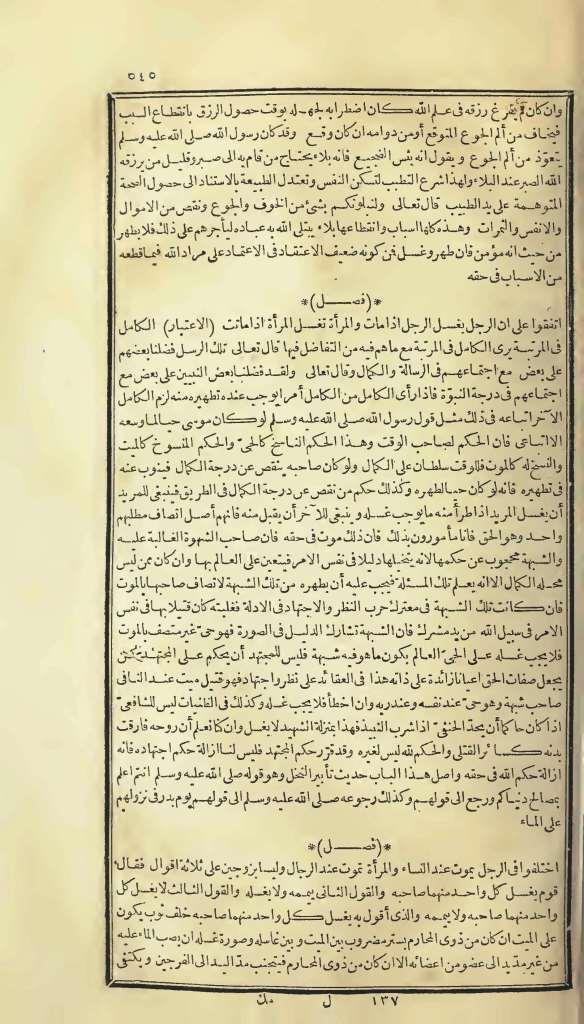 ٥٤٥
وان كان لم يفرغ رزقه فى علم الله كان اضطرابه لجهله بوقت حصول الرزق بانقطاع السبب
فيخاف من ألم الجوع المتوقع أو من دوامه ان كان وقع وقد كان رسول الله صلى الله عليه وسلم
يتعوّذ من ألم الجوع و يقول انه بئس الضجيع فانه بلاء يحتاج من قام به الى صبر وقليل من يرزقه
الله الصبر عند البلاء ولهذا شرع التطبب لتسكن النفس وتعتدل الطبيعة بالاستناد الى حصول الصحة
المتوهمة على يد الطبيب قال تعالى ولنبلونكم بشئ من الخوف والجوع ونقص من الاموال
والانفس والثمرات وهذه كلها أسباب وانقطاعها بلاء يبتلى الله به عباده ليأجرهم على ذلك فلا يطهر
من حيث انه مؤمن فان طهر وغسل فمن كونه ضعيف الاعتقاد فى الاعتماد على مراد الله فيما قطعه
من الاسباب فى حقه
*(فصل)*
اتفقوا على ان الرجل يغسل الرجل اذا مات والمرأة تغسل المرأة اذا ماتت (الاعتبار) الكامل
فى المرتبة يرى الكامل فى المرتبة مع ما هم فيه من التفاضل فيها قال تعالى تلك الرسل فضلنا بعضهم
على بعض مع اجتماعهم فى الرسالة والكمال وقال تعالى ولقد فضلنا بعض النبيين على بعض مع
اجتماعهم فى درجة النبوّة فاذا رأى الكامل من الكامل أمرا يوجب عنده تطهيره منه لزم الكامل
الآخر اتباعه فى ذلك مثل قول رسول الله صلى الله عليه وسلم لو كان موسى حيا لما وسعه
الا اتباعى فان الحكم لصاحب الوقت وهذا الحكم الناسخ كالحىّ والحكم المنسوخ كالميت
والنسخ له كالموت فللوقت سلطان على الكمال ولو كان صاحبه ينقص عن درجة الكمال فينوب عنه
فى تطهيره فانه لو كان حيا لطهره وكذلك حكم من نقص عن درجة الكمال فى الطريق فينبغى للمريد
أن يغسل المريد اذا طرأ منه ما يوجب غسله وينبغى للآخر أن يقبل منه فانهم أصل انصاف مطلبهم
واحد وهو الحق فانا مأمورون بذلك فان ذلك موت فى حقه فان صاحب الشهوة الغالبة عليه
والشبهة محجوب عن حكمها لانه يتخيلها دليلا فى نفس الامر فيتعين على العالم بها وان كان ممن ليس
محله الكمال الا انه يعلم تلك المسئلة فيجب عليه أن يطهره من تلك الشبهة لاتصاف صاحبها بالموت
فان كانت تلك الشبهة فى معترك حرب النظر والاجتهاد فى الادلة فغلبته كان قتيلا بها فى نفس
الامر فى سبيل الله من يد مشرك فان الشبهة تشارك الدليل فى الصورة فهو حىّ غير متصف بالموت
فلا يجب غسله على الحىّ العالم بكون ما هو فيه شبهة فليس للمجتهد أن يحكم على المجتهد كمن
يجعل صفات الحق أعيانا زائدة على ذاته هذا فى العقائد على نظر واجتهاد فهو قتيل ميت عند النافى
صاحب شبهة وهو حىّ عند نفسه وعند ربه وان اخطأ فلا يجب غسله وكذلك فى الظنيات ليس للشافعىّ
اذا كان حاكما أن يحدّ الحنفىّ اذا شرب النبيذ فهذا بمنزلة الشهيد لا يغسل وان كنا نعلم أن روحه فارقت
بدنه كسائر القتلى والحكم لله ليس لغيره وقد قرّر حكم المجتهد فليس لنا ازالة حكم اجتهاده فانه
ازالة حكم الله فى حقه واصل هذا الباب حديث تأبير النخل وهو قوله صلى الله عليه وسلم أنتم اعلم
بمصالح دنياكم ورجع الى قولهم وكذلك رجوعه صلى الله عليه وسلم الى قولهم يوم بدر فى نزولهم
على الماء
*(فصل)*
اختلفوا فى الرجل يموت عند النساء والمرأة تموت عند الرجال وليسا بزوجين على ثلاثة اقوال فقال
قوم يغسل كل واحد منهما صاحبه والقول الثانى ييممه ولا يغسله والقول الثالث لا يغسل كل
واحد منهما صاحبه ولا ييممه والذى أقول به يغسل كل واحد منهما صاحبه خلف ثوب يكون
على الميت ان كان من ذوى المحارم بستر مضروب بين الميت وبين غاسله وصورة غسله ان يصب الماء عليه
من غير مدّ يد الى عضو من اعضائه الا ان كان من ذوى المحارم فيتجنب مدّ اليد الى الفرجين و يكتفى
١٣٧ ل مك